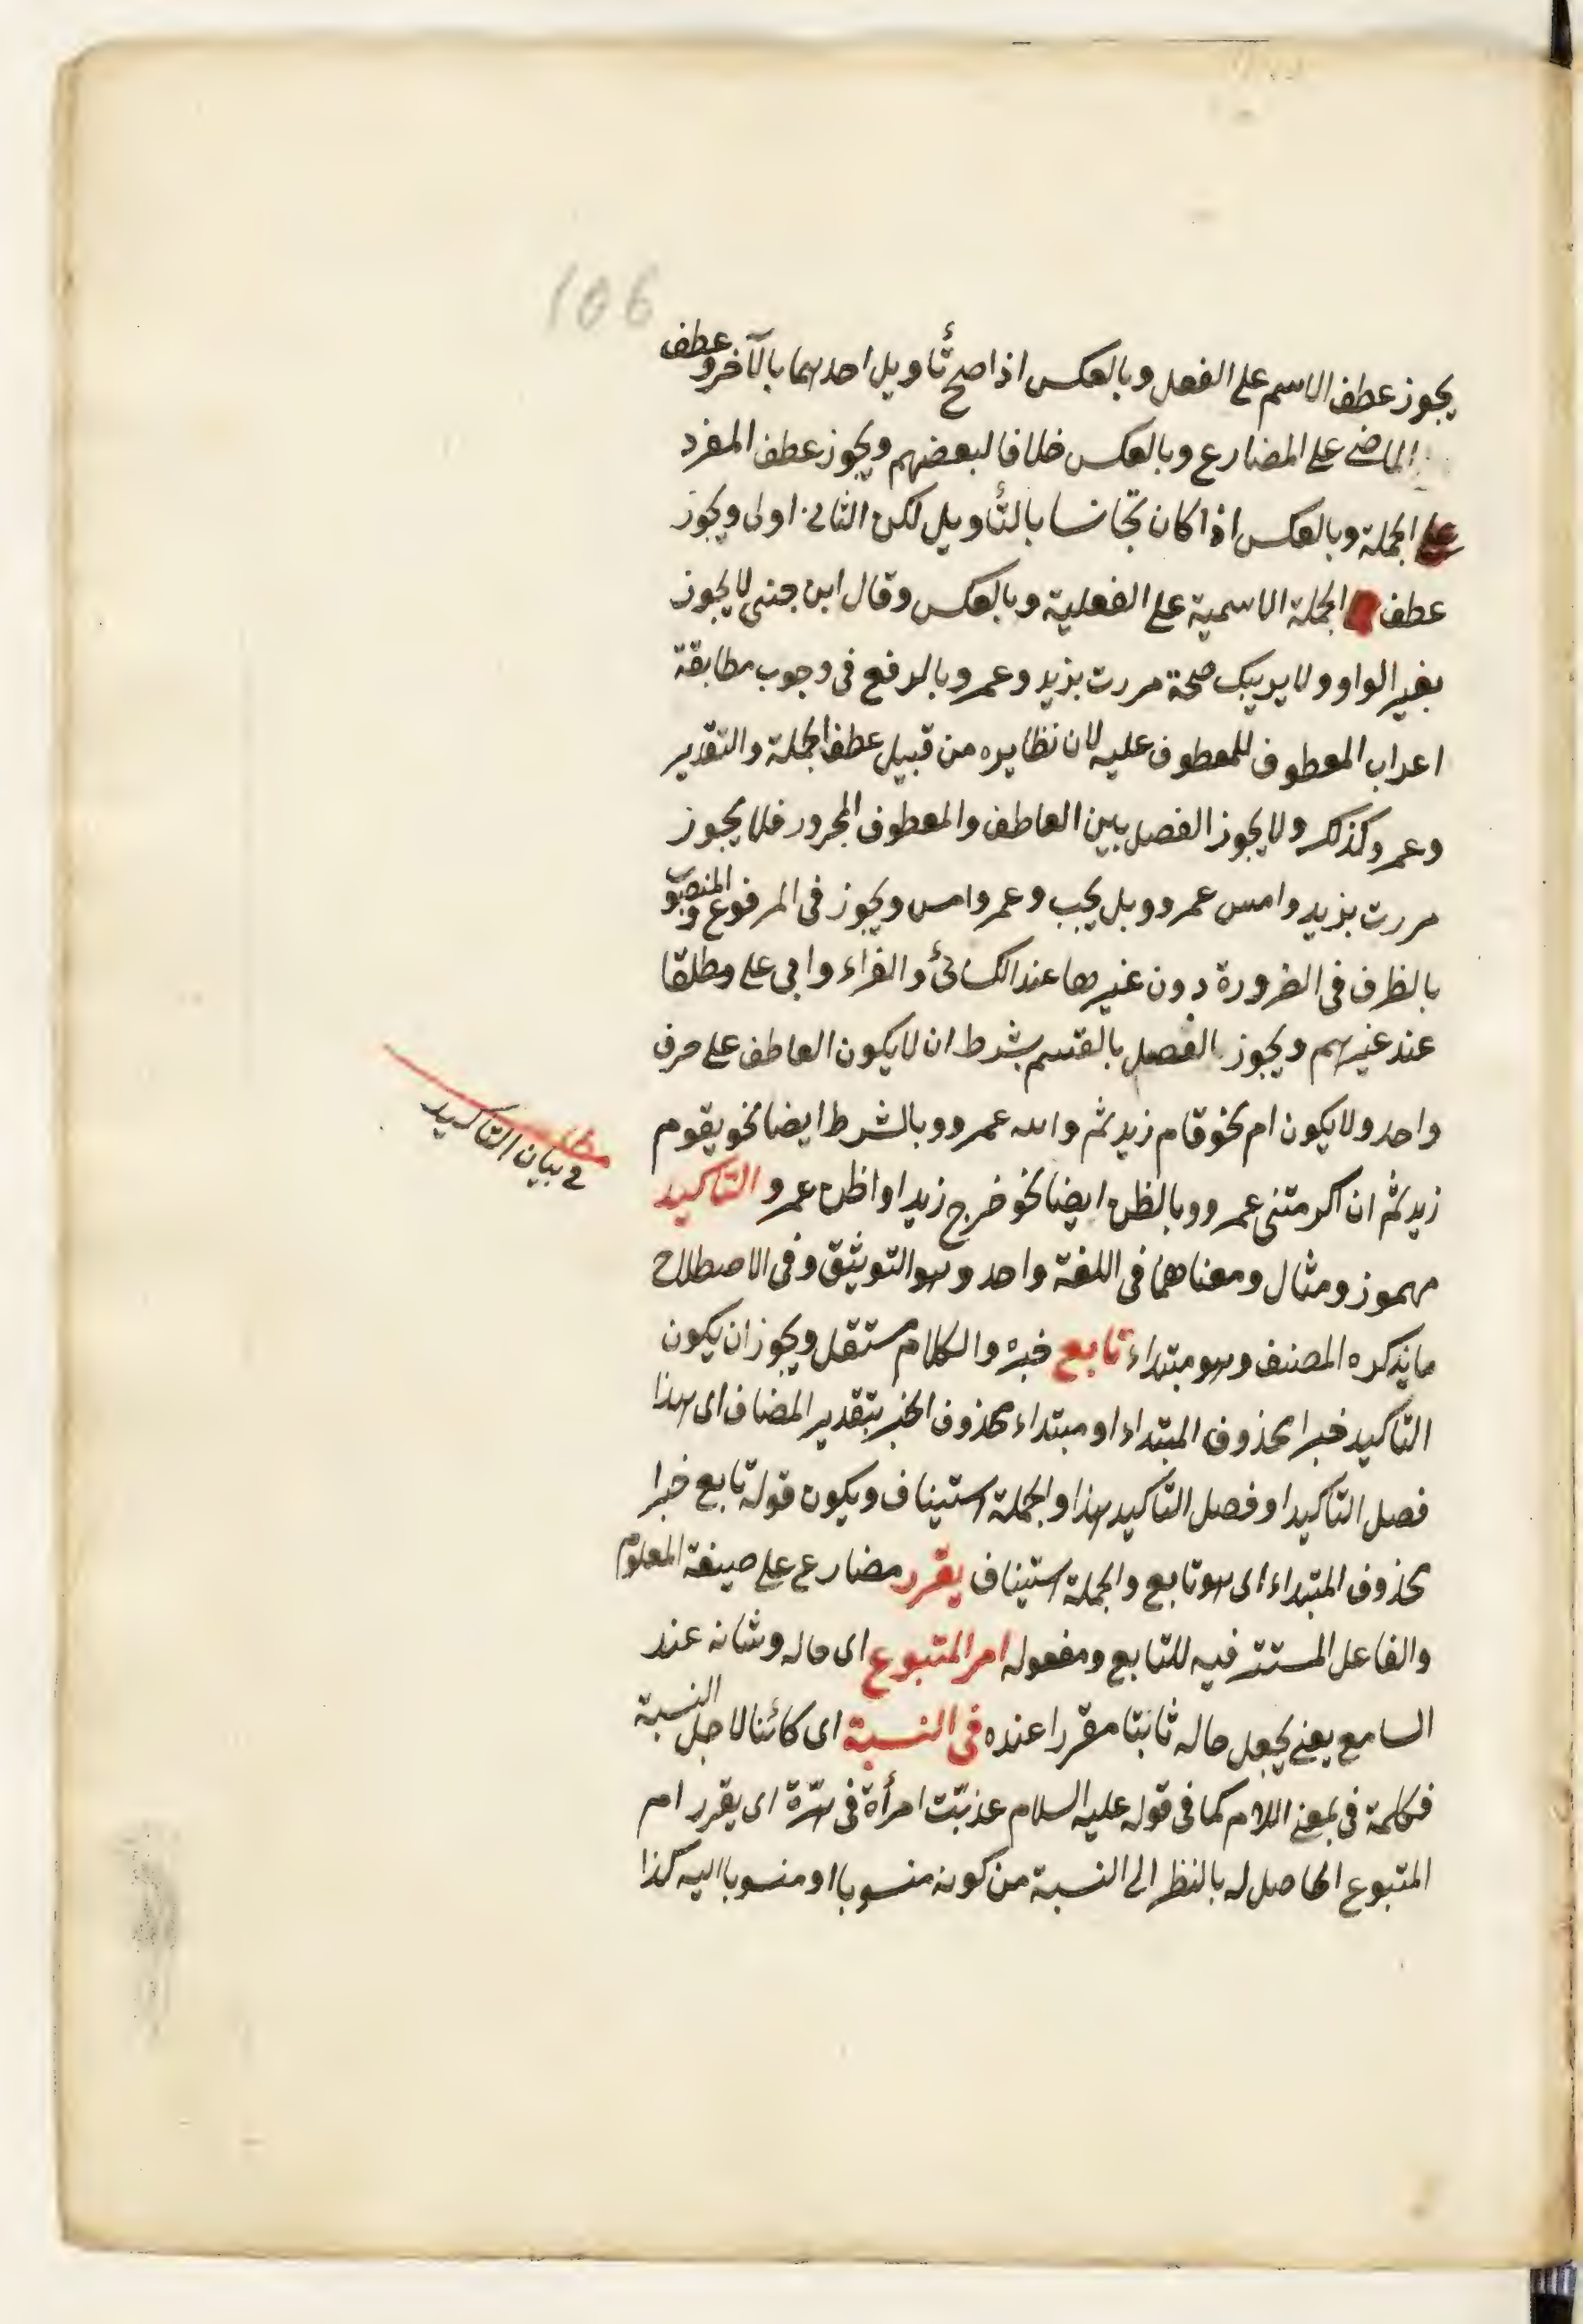 106
يجوز عطف الاسم على الفعل وبالعكس اذا صح تأويل احدهما بالآخر وعطف
الماضى على المضارع وبالعكس خلافا لبعضهم ويجوز عطف المفرد
على الجملة وبالعكس اذا كان تجانسا بالتأويل لكن الثانى اولى ويجوز
عطف الجملة الاسمية على الفعلية وبالعكس وقال ابن جنى لا يجوز
بغير الواو ولا يريبك صحة مررت بزيد وعمرو بالرفع فى وجوب مطابقة
اعراب المعطوف للمعطوف عليه لان نظايره من قبيل عطف الجملة والتقدير
وعمرو كذلك ولا يجوز الفصل بين العاطف والمعطوف المجرور فلا يجوز
مررت بزيد وامس عمرو وبل يجب وعمرو امس ويجوز فى المرفوع والمنصوب
بالظرف فى الضرورة دون غيرها عند الكسائى والفراء وابى على ومطلقا
عند غيرهم ويجوز الفصل بالقسم بشرط ان لا يكون العاطف على حرف
واحد ولا يكون ام نحو قام زيد ثم والله عمرو وبالشرط ايضا نحو يقوم
زيد ثم ان اكرمتنى عمرو وبالظن ايضا نحو خرج زيد او اظن عمرو التاكيد
مهموز ومثال ومعناهما فى اللغة واحد وهو التوثيق وفى الاصطلاح
ما يذكره المصنف وهو مبتداء تابع خبره والكلام مستقل ويجوز ان يكون
التاكيد خبرا محذوف المبتداء او مبتداء محذوف الخبر بتقدير المضاف اى هذا
فصل التاكيد او فصل التاكيد هذا والجملة استيناف ويكون قوله تابع خبرا
محذوف المبتداء اى هو تابع والجملة استيناف يقرر مضارع على صيغة المعلوم
والفاعل المستتر فيه للتابع ومفعوله امر المتبوع اى حاله وشانه عند
السامع يعنى يجعل حاله ثابتا مقررا عنده فى النسبة اى كائنا لاجل النسبة
فكلمة فى بمعنى اللام كما فى قوله عليه السلام عذبت امرأة فى هرّة اى يقرر امر
المتبوع الحاصل له بالنظر الى النسبة من كونه منسوبا او منسوبا اليه كذا
مطلب
فى بيان التاكيد